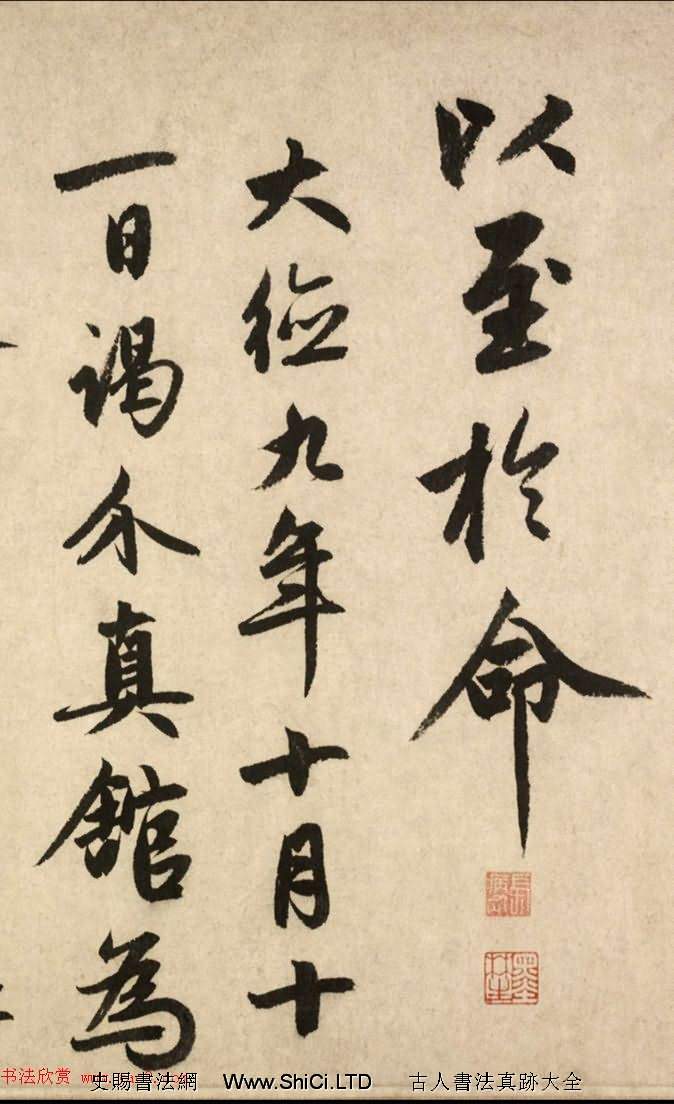 以至於命
大德九年十月十
一日謁介真館為
书法欣赏 www.
史賜書法網 Www.ShiCi.LTD 古人書法真跡大全